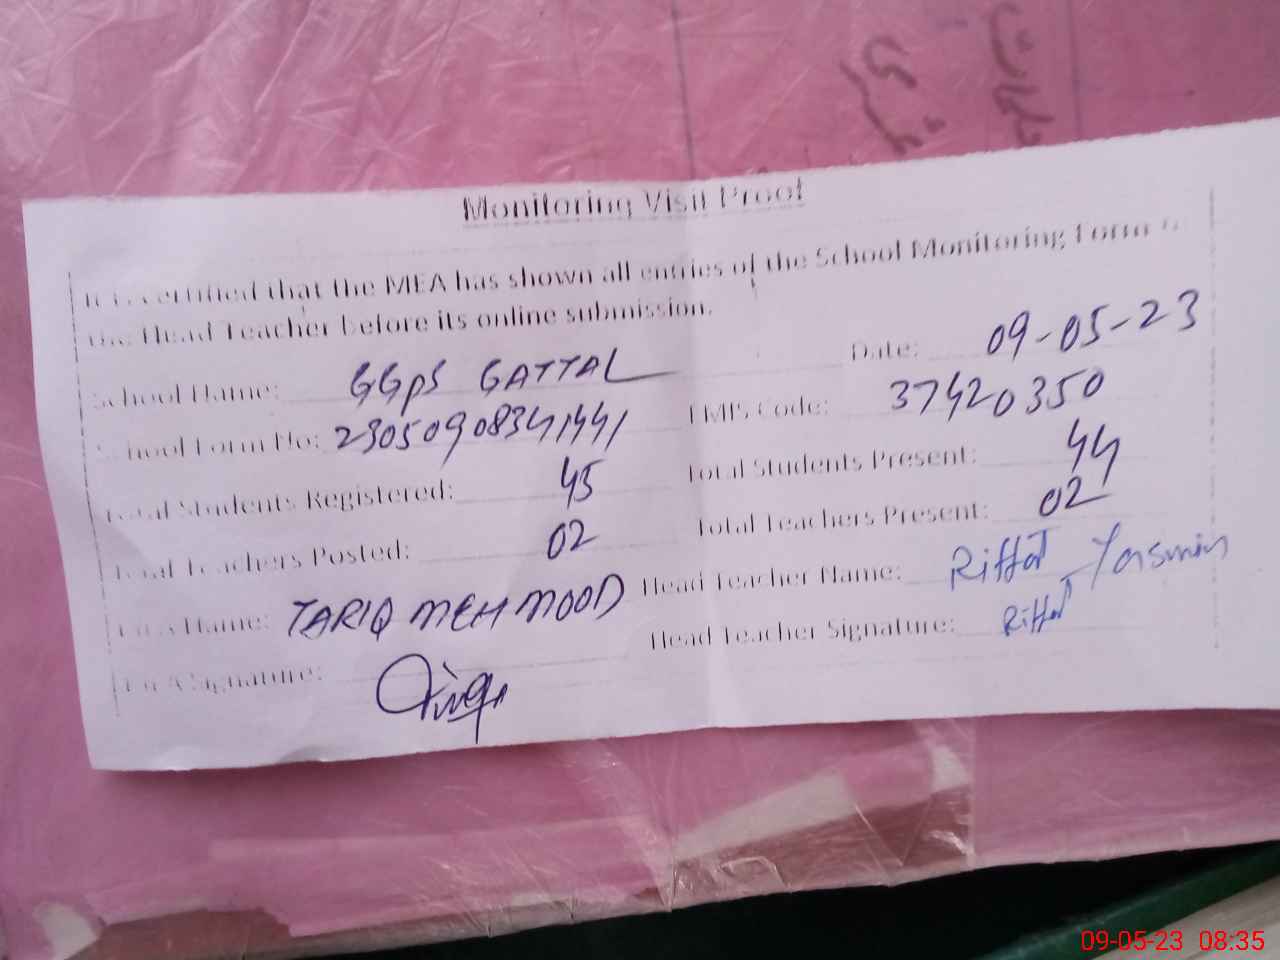 Monitoring Visit Proof
It is certified that the MEA has shown all entries of the School Monitoring Form to
the Head Teacher before its online submission.
School Name: GGPS GATTAL Date: 09-05-23
School Form No: EMIS Code: 37420350
Total Students Registered: 45 Total Students Present: 44
Total Teachers Posted: 02 Total Teachers Present: 02
MEA Name: TARIQ MEHMOOD Head Teacher Name: Riffat Yasmin
MEA Signature: Head Teacher Signature: Riffat
09-05-23 08:35